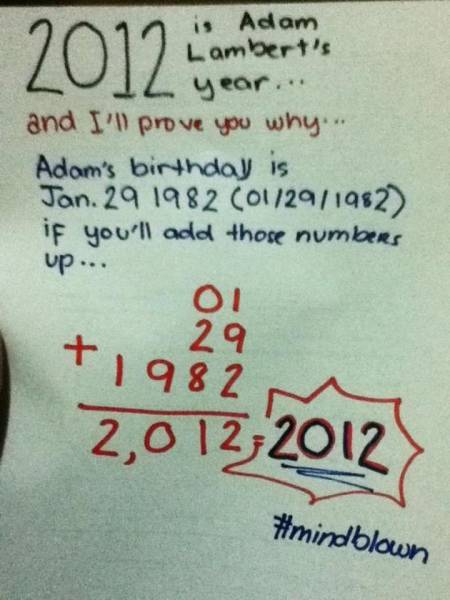 2012 is Adam
Lambert's
year...
and I'll prove you why...
Adam's birthday is
Jan. 29 1982 (01/29/1982)
if you'll add those numbers
up...
01
29
+ 1982
2,012 = 2012
#mindblown